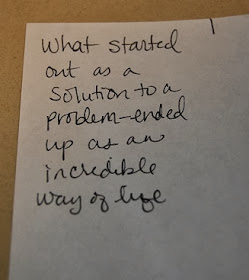 What started
out as a
solution to a
problem-ended
up as an
incredible
way of life